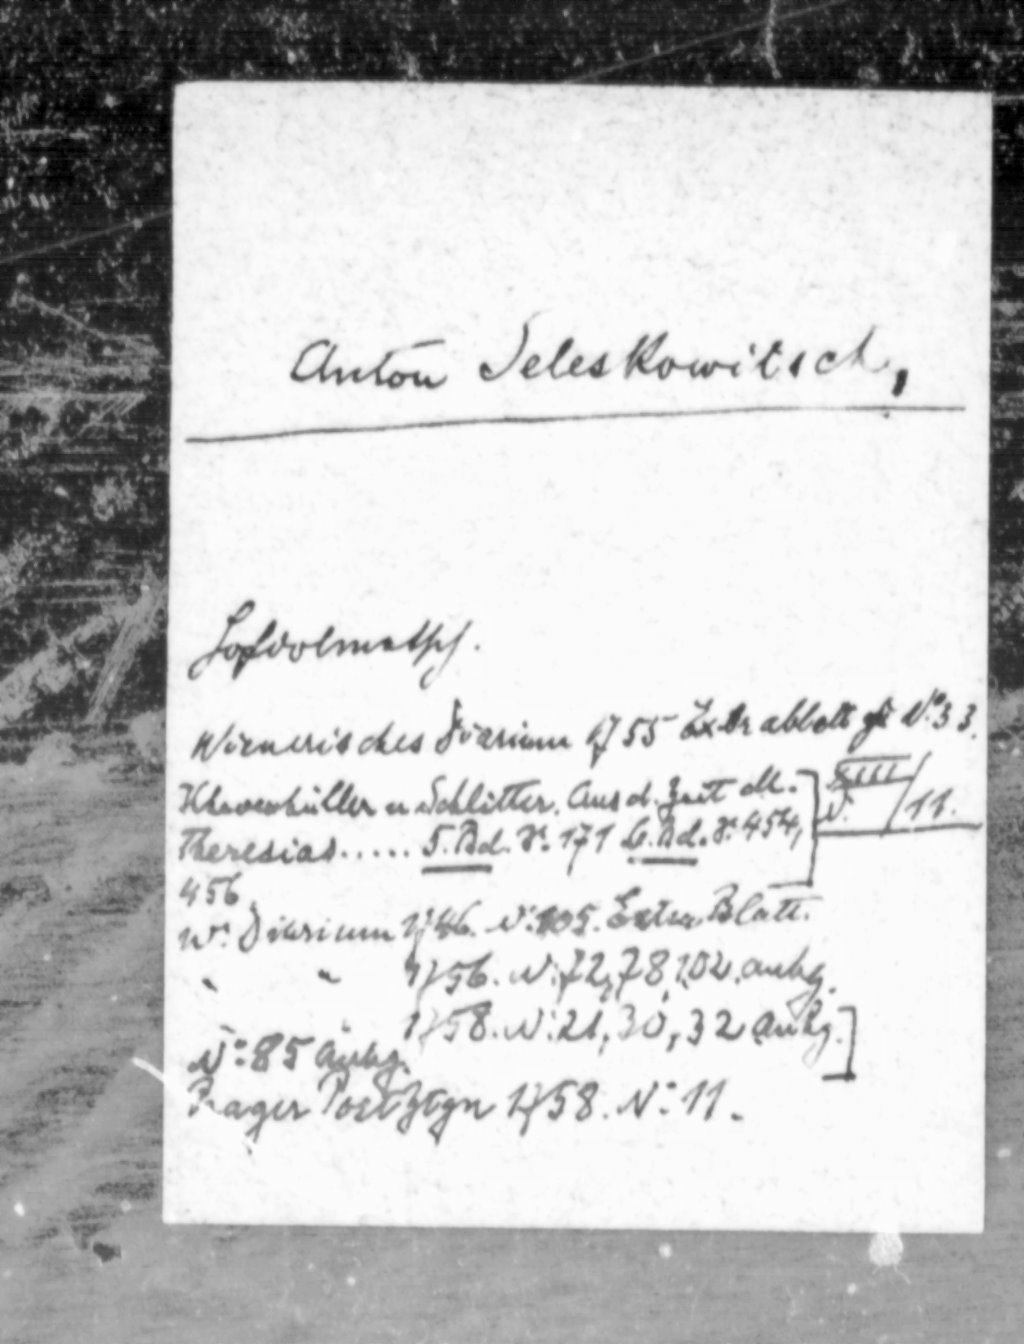 Anton Seleskowitsch,
Hofdolmetsch.
Wienerisches Diarium 1755 Extrablatt zu N: 33.
Khevenhüller u Schlitter. Aus d. Zeit M.
Theresias..... 5. Bd. S. 171 6. Bd. S. 454,
456.
XIII / 11.
W. Diarium 1746. N: 105. Extra Blatt.
" " 1756. N: 72, 78, 102. anhg.
" 1758. N: 21, 30, 32 anhg.
N: 85 anhg.
Prager Postztgn 1758. N: 11.